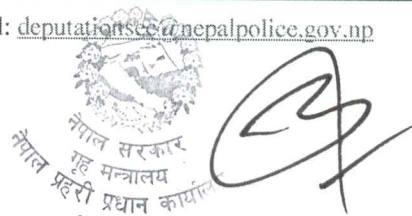 l: deputationsec@nepalpolice.gov.np
नेपाल सरकार
गृह मन्त्रालय
नेपाल प्रहरी प्रधान कार्याल